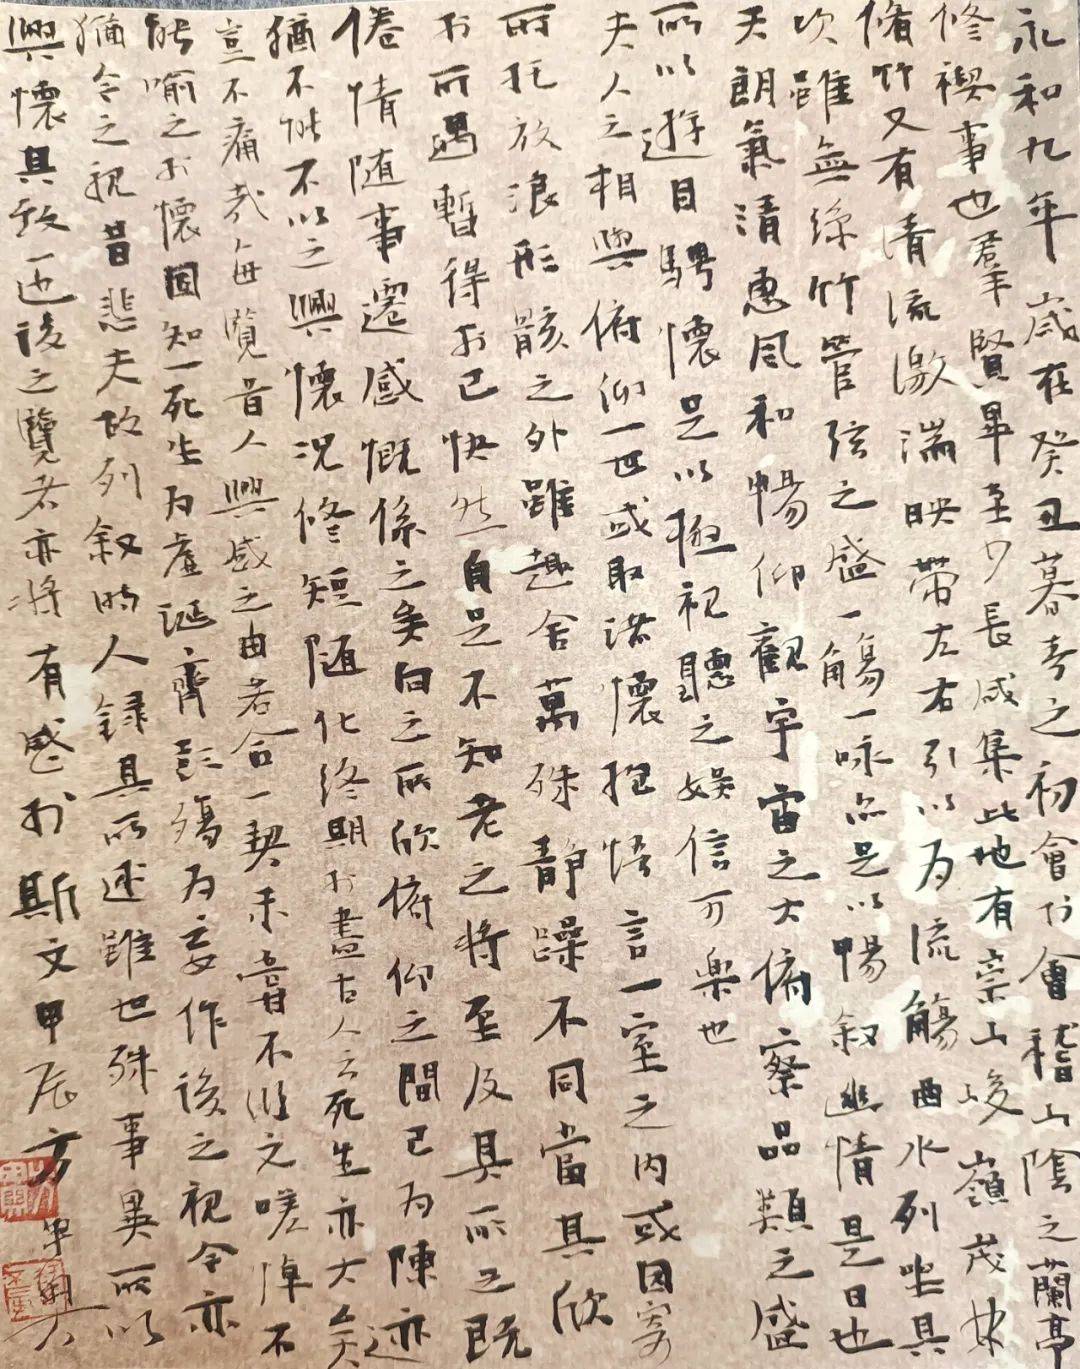 永和九年歲在癸丑暮春之初會於會稽山陰之蘭亭
修禊事也羣賢畢至少長咸集此地有崇山峻嶺茂林
脩竹又有清流激湍映帶左右引以為流觴曲水列坐其
次雖無絲竹管弦之盛一觴一詠亦足以暢敘幽情是日也
天朗氣清惠風和暢仰觀宇宙之大俯察品類之盛
所以遊目騁懷足以極視聽之娛信可樂也
夫人之相與俯仰一世或取諸懷抱悟言一室之內或因寄
所托放浪形骸之外雖趣舍萬殊靜躁不同當其欣
於所遇暫得於己快然自足不知老之將至及其所之既
倦情隨事遷感慨係之矣向之所欣俯仰之間已為陳迹
猶不能不以之興懷況修短隨化終期於盡古人云死生亦大矣
豈不痛哉每覽昔人興感之由若合一契未嘗不臨文嗟悼不
能喻之於懷固知一死生為虛誕齊彭殤為妄作後之視今亦
猶今之視昔悲夫故列敘時人錄其所述雖世殊事異所以
興懷其致一也後之覽者亦將有感於斯文甲辰方